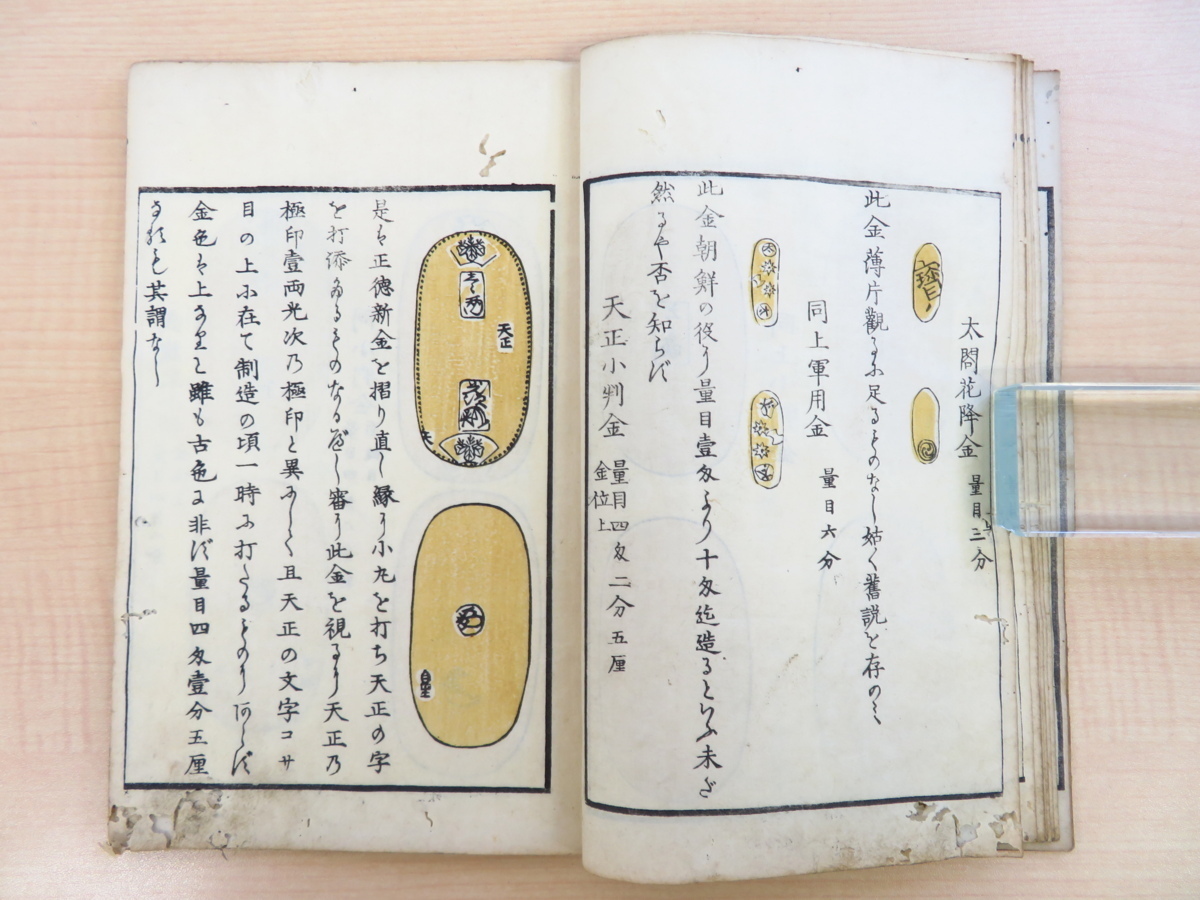 太閤花降金 量目三分
此金薄片觀るに足るものなし姑く舊説を存のミ
同上軍用金 量目六分
此金朝鮮の役に量目壹匁より十匁迄造るといふ未だ
然るや否を知らず
天正小判金 量目四匁二分五厘
金位上
天正
是は正徳新金を摺り直し縁に小丸を打ち天正の字
を打添たるものなるべし審に此金を視るに天正乃
極印壹両光次乃極印と異なし且天正の文字コサ
目の上に在て制造の頃一時に打たるものにあらず
金色は上なりと雖も古色に非ず量目四匁壹分五厘
其謂なし